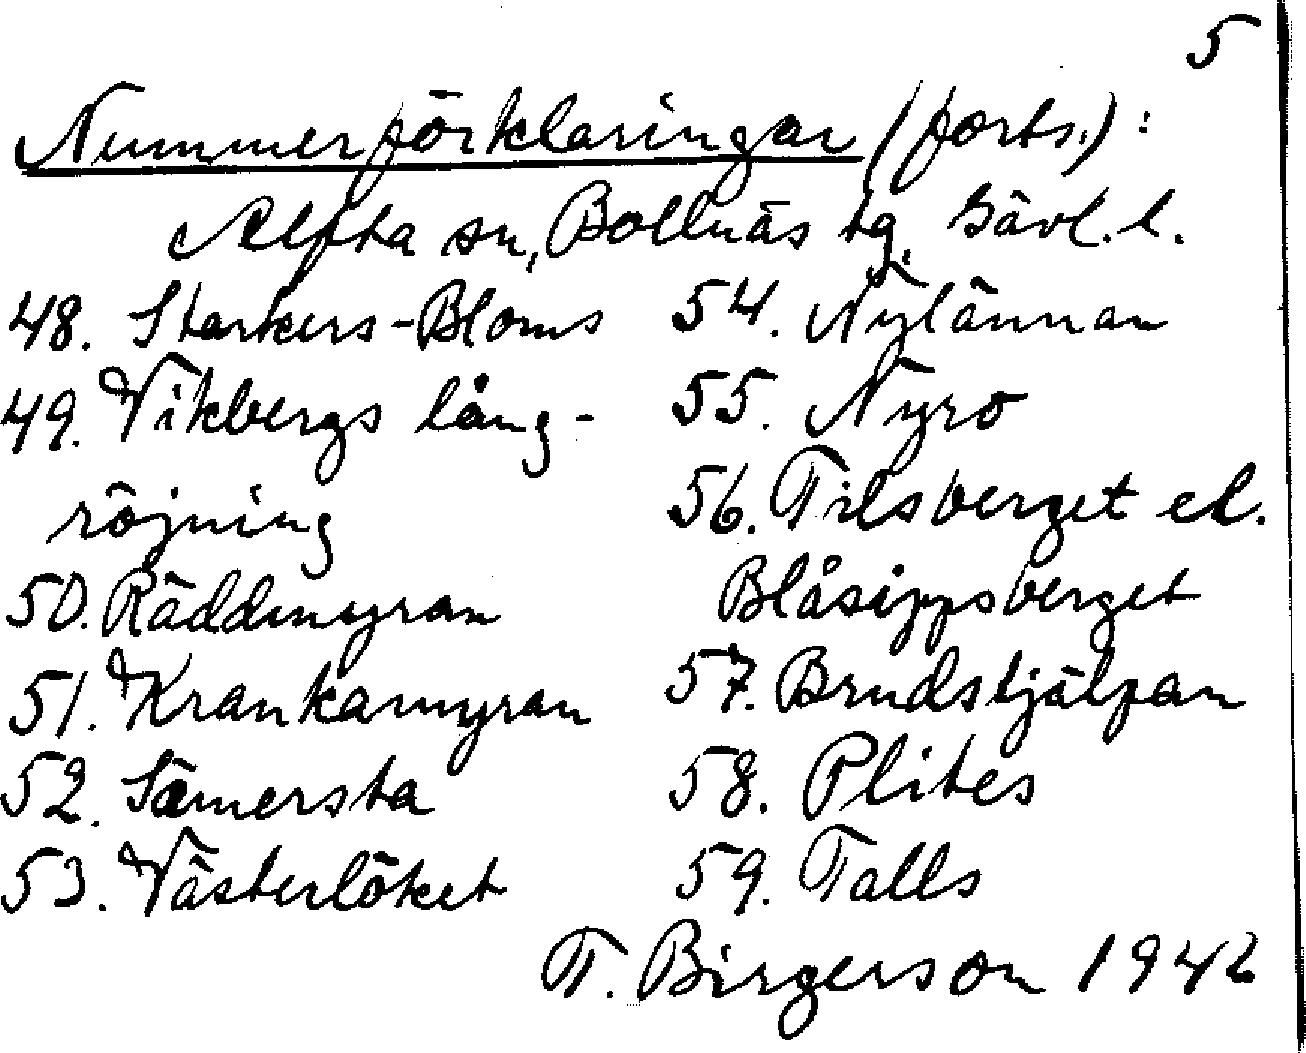 5
Nummerförklaringar (forts.):
Alfta sn, Bollnäs tg. Gävl. l.
48. Starkers-Bloms
49. Vikbergs lång-
röjning
50. Räddmyran
51. Krankamyran
52. Sämersta
53. Västerlöket
54. Nylännan
55. Nyro
56. Tilsberget el.
Blåsippsberget
57. Brudstjälpan
58. Plites
59. Talls
T. Birgerson 1942